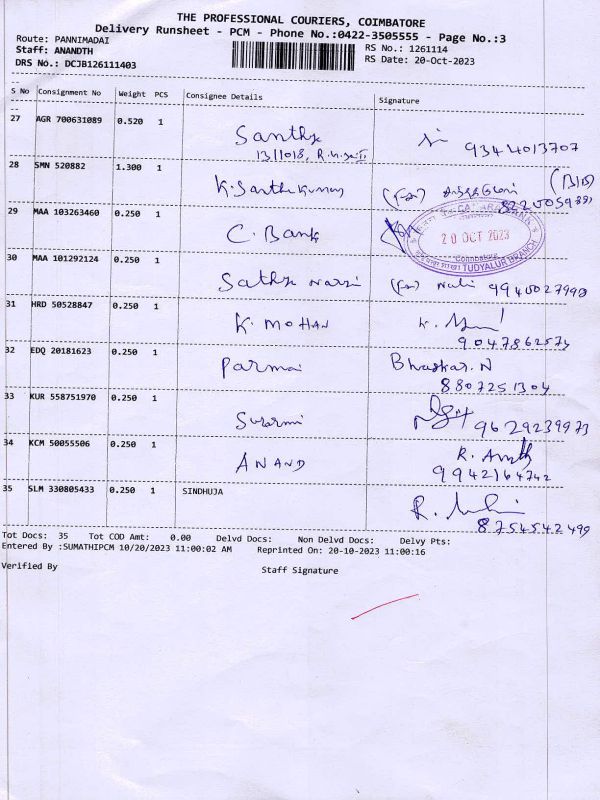 THE PROFESSIONAL COURIERS, COIMBATORE
Delivery Runsheet - PCM - Phone No.:0422-3505555 - Page No.:3
Route: PANNIMADAI
RS No.: 1261114
Staff: ANANDTH
RS Date: 20-Oct-2023
DRS No.: DCJB126111403
S No Consignment No Weight PCS Consignee Details Signature
27 AGR 700631089 0.520 1
Santhx
9344013707
28 SMN 520882 1.300 1
K.Santhikumar
(For)
29 MAA 103263460 0.250 1
C. Bank
20 OCT 2023
Coimbatore
TUDYALUR BRANCH
30 MAA 101292124 0.250 1
Sathx
(For) 9940027998
31 HRD 50528847 0.250 1
K. MOHAN
K.
9047862574
32 EDQ 20181623 0.250 1
Parmai
Bhaskar. N
8807251304
33 KUR 558751970 0.250 1
9629239973
34 KCM 50055506 0.250 1
ANAND
R.
9942164742
35 SLM 330805433 0.250 1 SINDHUJA
R.
8754542499
Tot Docs: 35 Tot COD Amt: 0.00 Delvd Docs: Non Delvd Docs: Delvy Pts:
Entered By :SUMATHIPCM 10/20/2023 11:00:02 AM Reprinted On: 20-10-2023 11:00:16
Verified By Staff Signature